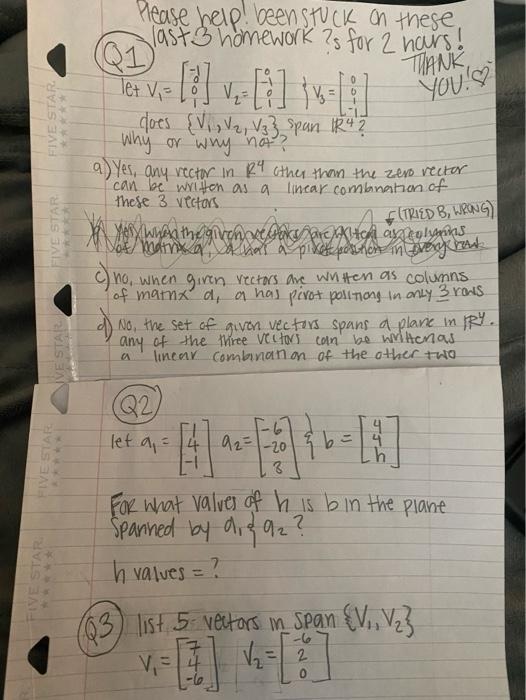 Please help! been stuck on these
last 3 homework ?s for 2 hours!
THANK
YOU! ♡
Q1
let V₁ = [-1 0 0 1] V₂ = [0 -1 0 1] & V₃ = [0 0 1 -1]
does {V₁, V₂, V₃} span ℝ4?
why or why not?
a) Yes, any vector in ℝ4 other than the zero vector
can be written as a linear combination of
these 3 vectors
(TRIED B, WRONG)
b) Yes, when the given vectors are written as columns
of matrix a, a has a pivot position in every row
c) no, when given vectors are written as columns
of matrix a, a has pivot positions in only 3 rows
d) No, the set of given vectors spans a plane in ℝ4.
any of the three vectors can be written as
a linear combination of the other two
Q2
let a₁ = [1 4 -1] a₂ = [-6 -20 8] & b = [4 4 h]
For what values of h is b in the plane
spanned by a₁ & a₂?
h values = ?
Q3 list 5 vectors in span {V₁, V₂}
V₁ = [7 4 -6] V₂ = [-6 2 0]
FIVE STAR
FIVE STAR
FIVE STAR
FIVE STAR
FIVE STAR